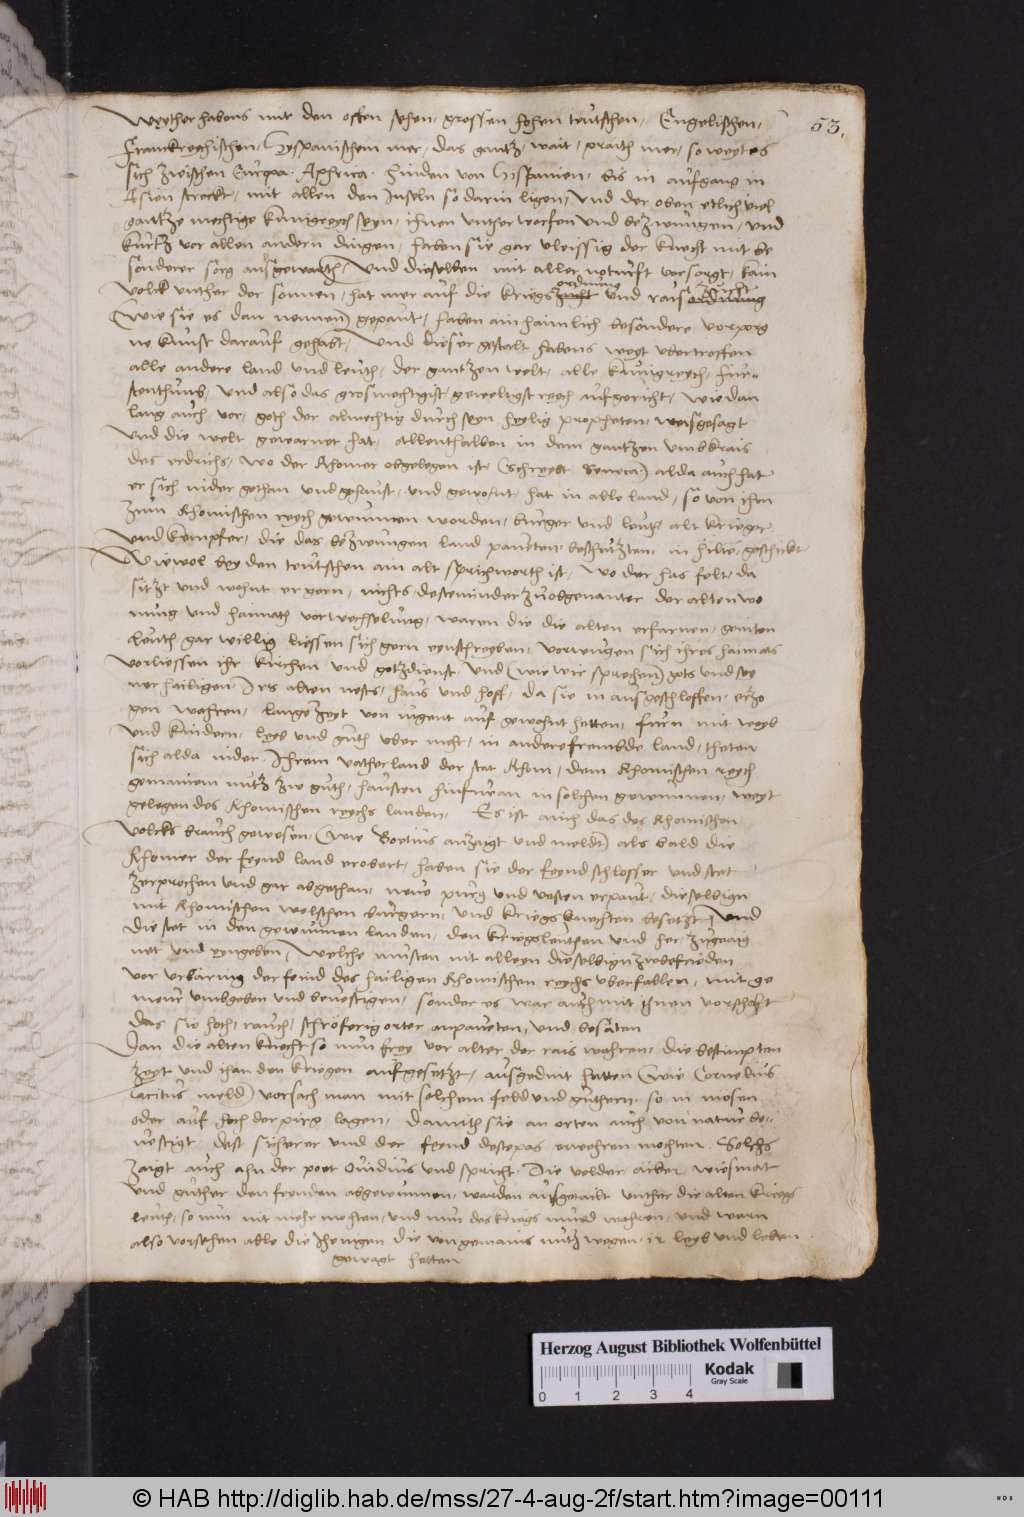 53.
Weyther habens mit den offen sehen, grossen hohen teutschen, Engelischen,
Franckreychischen, Hyspanischem mer, das gantz, wait, praith mer, so weyt es
sich zwischen Europa, Aphrica hinden von Hispanien, bis in aufgang in
Asien streckt, mit allen den Inseln so darin ligen, und der oben etlich viel
gantze mechtige künigreych seyn, ihnen untherworfen und bezwungen, und
kurtz vor allen andern dingen, haben sie gar vleissig der knecht mit be
sonderer sorg ausgewarth, und dieselben mit aller noturft versorgt, kain
volck unther der sonnen, hat mer auf die kriegs zunft ordnung und raisordnung
(wie sie es dan nennen) gepaut, haben ain haimlich besondere verporg
ne kunst darauf gehabt, und dieser gestalt habens weyt ubertroffen
alle andere land und leuth, der gantzen welt, alle künigreych, fur-
stenthumb, und also das grosmechtigist, geweltigst reych aufgericht, wie dan
lang auch vor, goth der almechtig durch seyn heylig propheten, weisgesagt
und die welt gewarnet hat, allenthalben in dem gantzen umbkrais
des erdrichs, wo der Rhomer obgelegen ist, (schreybt Seneca) alda auch hat
er sich nider gethan und gehaust, und gewohnt hat in alle land, so von ihm
zum Rhomischen reych gewunnen worden, burger und leut, alt krieger
und kempfer, die das bezwungen land paueten beschutzten, in hilie, geschickt
Wiewol bey den teutschen ain alt sprichworth ist, wo der has felt, da
sitzt und wohnt er gern, nichts desteminder zuobgenanter der alten wo
nung und haimath verwechselung, waren die die alten erfarnen, gmiten
leuth gar willig liessen sich gern eynschreyben, verwegen sich ihres haimats
verliessen ihr kirchen und gotzdienst, und (wie wir sprechen) gots und sey
ner hailigen, Irs alten nests, haus und hoff, da sie in ausgeschloffen, erzo
gen wahren, lange zeyt von iugent auf gewohnt hetten, furn mit weyb
und kindern, leyb und guth uber meht, in andere frembde land, theten
sich alda nider, Ihrem vatherland der stat Rhom, dem Rhomischen reych
gemainem nutz zw guth, hausten hinfuran in solchen gewunnen, weyt
gelegen des Rhomischen reychs landen, Es ist auch das des Rhomischen
volcks brauch gewesen, (wie Boetius anzaigt und meldt) als bald die
Rhomer der feynd land erobert, haben sie der feynd schlosser und stet
zerprochen und gar abgethan, neue purg und vesten erpaut, dieselbign
mit Rhomischen welschen burgern, und kriegsknechten besetzt, und
die stet in den gewunnen landen, den kriegsleuthen und her, zugeaig
net und eyngeben, welche musten nit alleyn dieselbign zwbefrieden
vor urbaring der feind des hailigen Rhomischen reychs uberfallen, mit ge
meur umbgeben und bevestigen, sonder es war auch mit ihnen verschaft
das sie hoch, rauch, schroferig orter anpaueten, und besaten
Dan die alten knecht so nun frey vor alter der rais wahren, die bestimpten
zeyt und ihan den kriegen aufgesetzt, ausgedint hatten (wie Cornelius
Tacitus meld) versach man mit solchem feld und guthern, so in mosen
oder auf hoch der pirg lagen, Damith sie an orten auch von natur be-
vestigt dest sicherer und der feynd destepas erwehren mochten. Solchs
zaigt auch ahn der poet Ovidius und spricht, Die velder, acker, wiesmat
und guther den feinden abgewunnen, warden ausgetailt unther die alten kriegs
leuth, so nun nit mehr mochten, und nun des kriegs mued wahren, und warn
also versehen alle die ihenigen die von gemains nutz wegen, ir leyb und leben
gewagt hetten
Herzog August Bibliothek Wolfenbüttel
0 1 2 3 4
Kodak
Gray Scale
© HAB http://diglib.hab.de/mss/27-4-aug-2f/start.htm?image=00111